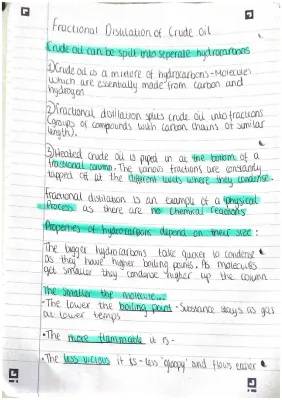 Fractional Distilation of Crude Oil
Crude oil can be split into seperate hydrocarbons
1) Crude oil is a mixture of hydrocarbons - Molecules
which are essentially made from carbon and
hydrogen
2) Fractional distillation splits crude oil into fractions
(groups of compounds with carbon chains of similar
length).
3) Heated crude oil is piped in at the bottom of a
fractional column. The various fractions are constantly
tapped off at the different levels where they condense.
Fractional distilation is an example of a physical
process as there are no chemical reactions
Properties of hydrocarbons depend on their size:
The bigger hydrocarbons take quicker to condense
as they have higher boiling points. As molecules
get smaller they condense higher up the column
The smaller the molecule...
- The lower the boiling point - Substance stays as gas
at lower temps
• The more flammable it is -
• The less viscous it is - less 'gloopy' and flows easier